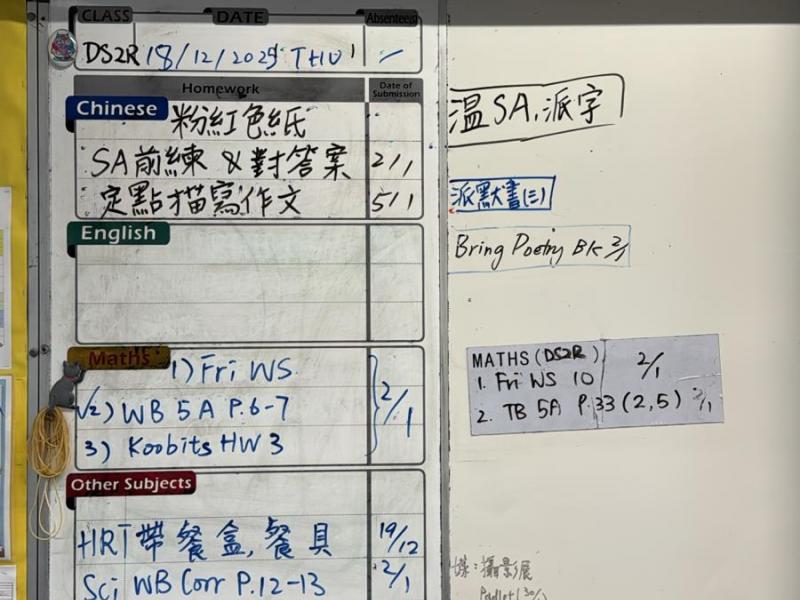 CLASS DATE Absentee(s)
DS2R 18/12/2025 THU
Homework Date of Submission
Chinese
粉紅色紙
SA前練 & 對答案 2/1
定點描寫作文 5/1
English
Maths
1) Fri WS
√2) WB 5A P.6-7
3) Koobits HW 3
2/1
Other Subjects
HRT 帶餐盒,餐具 19/12
Sci WB Corr P.12-13 2/1
溫SA,派字
派默書(三)
Bring Poetry BK 2/1
MATHS (DS2R) 2/1
1. Fri WS 10
2. TB 5A P.33 (2,5) 2/1
攝影展
Padlet